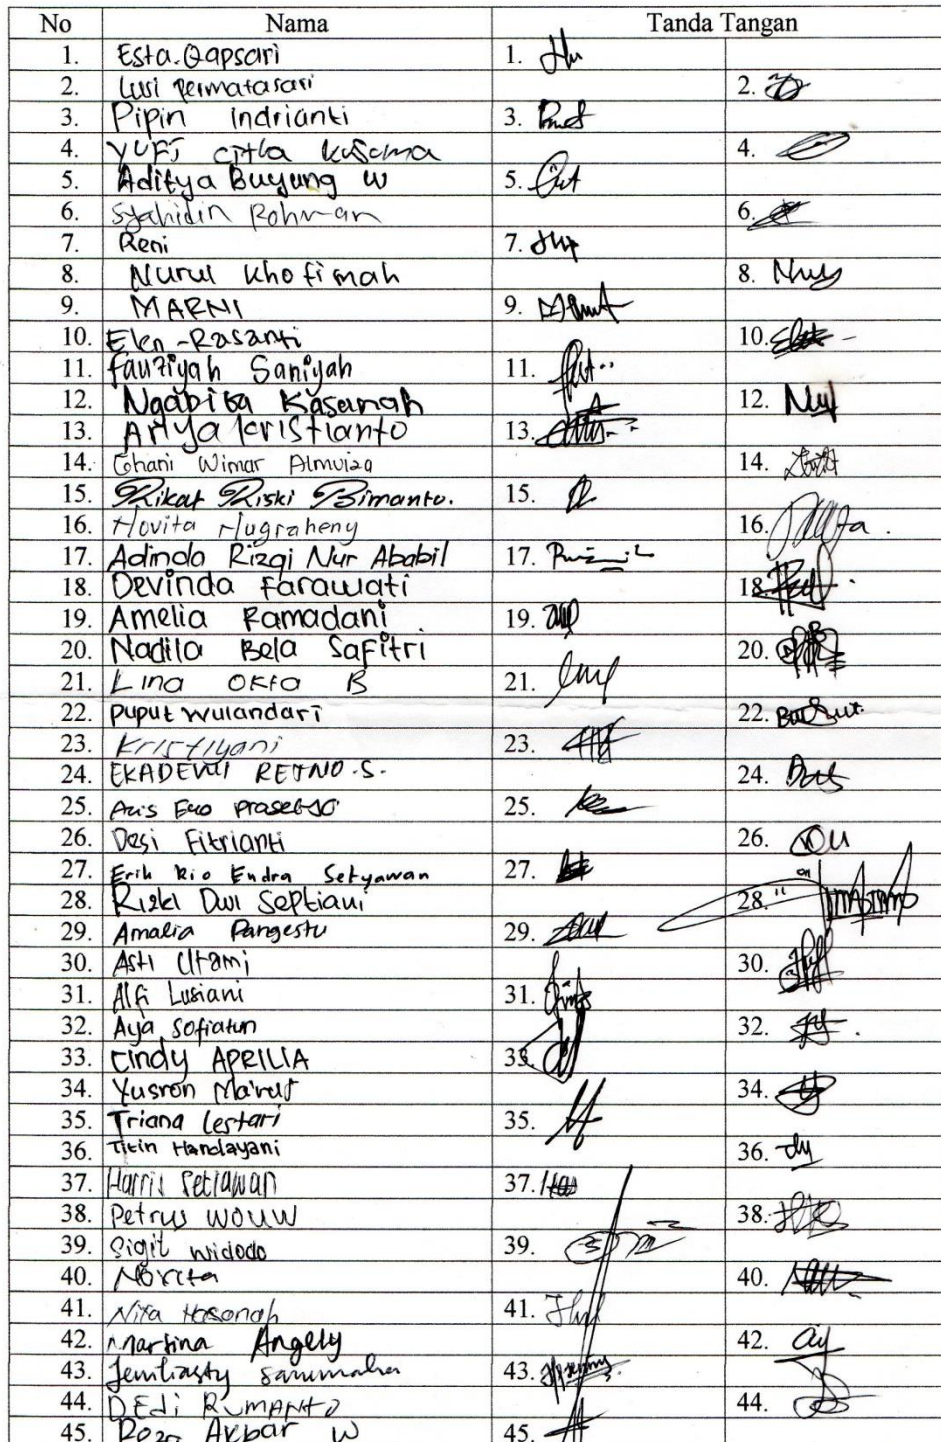 No Nama Tanda Tangan
1. Esta.Qapsari 1.
2. Lusi Permatasari 2.
3. Pipin Indrianti 3.
4. YUFI citra kusuma 4.
5. Aditya Buyung W 5.
6. Syahidin Rohman 6.
7. Reni 7.
8. Nurul Khofimah 8.
9. MARNI 9.
10. Elen-Rasanti 10.
11. Fauziyah Saniyah 11.
12. Ngabita Kasanah 12.
13. Ariya Kristianto 13.
14. Ghani Wimar Almuiza 14.
15. Rikat Riski Bimanto. 15.
16. Novita Nugraheny 16.
17. Adinda Rizqi Nur Ababil 17.
18. Devinda Farawati 18.
19. Amelia Ramadani 19.
20. Nadila Bela Safitri 20.
21. Lina Okta B 21.
22. Puput Wulandari 22.
23. Kristiyani 23.
24. EKADEWI RETNO.S. 24.
25. Aris Eko Prasetyo 25.
26. Desi Fitrianti 26.
27. Erik Rio Endra Setyawan 27.
28. Rizki Dwi Septiani 28.
29. Amalia Pangestu 29.
30. Asti Utami 30.
31. Alfi Lusiani 31.
32. Aya Sofiatun 32.
33. Cindy APRILIA 33.
34. Yusron Ma'ruf 34.
35. Triana Lestari 35.
36. Titin Handayani 36.
37. Harris Setiawan 37.
38. Petrus WOUW 38.
39. Sigit Widodo 39.
40. Norita 40.
41. Nita Hasanah 41.
42. Martina Angely 42.
43. 43.
44. DEdi RUMANTO 44.
45. Akbar W 45.